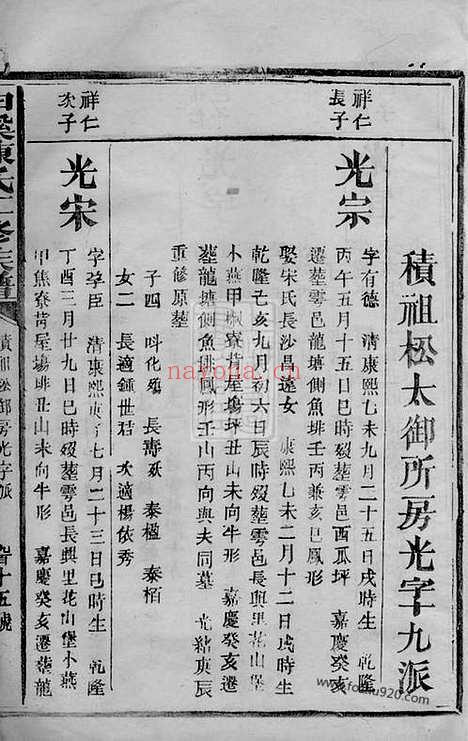 積祖松太御所房光字十九派
祥仁
長子
光宗
字有德 清康熙乙未九月二十五日戌時生 乾隆
丙午五月十五日巳時歿塟雲邑西瓜坪 嘉慶癸亥
遷塟雲邑龍塘側魚埤壬丙兼亥巳鳳形
娶宋氏長沙昌遠女 康熙乙未二月十二日戌時生
乾隆己亥九月初六日辰時歿塟雲邑長興里花山堡
小燕甲椒寮背屋塲坪丑山未向牛形 嘉慶癸亥遷
塟龍塘側魚排鳳形壬山丙向與夫同墓 光緒庚辰
重修原塟
子四 科化 長壽 泰楹 泰栢
女二 長適鍾世 次適楊依秀
祥仁
次子
光宋
字孚臣 清康熙庚子七月二十三日巳時生 乾隆
丁酉三月廿九日巳時歿塟雲邑長興里花山堡小燕
甲焦寮背屋塲排丑山未向牛形 嘉慶癸亥遷塟龍
陳氏五修族譜
積祖松御房光字派
十五號
nayona.cn
www.fozhu920.com